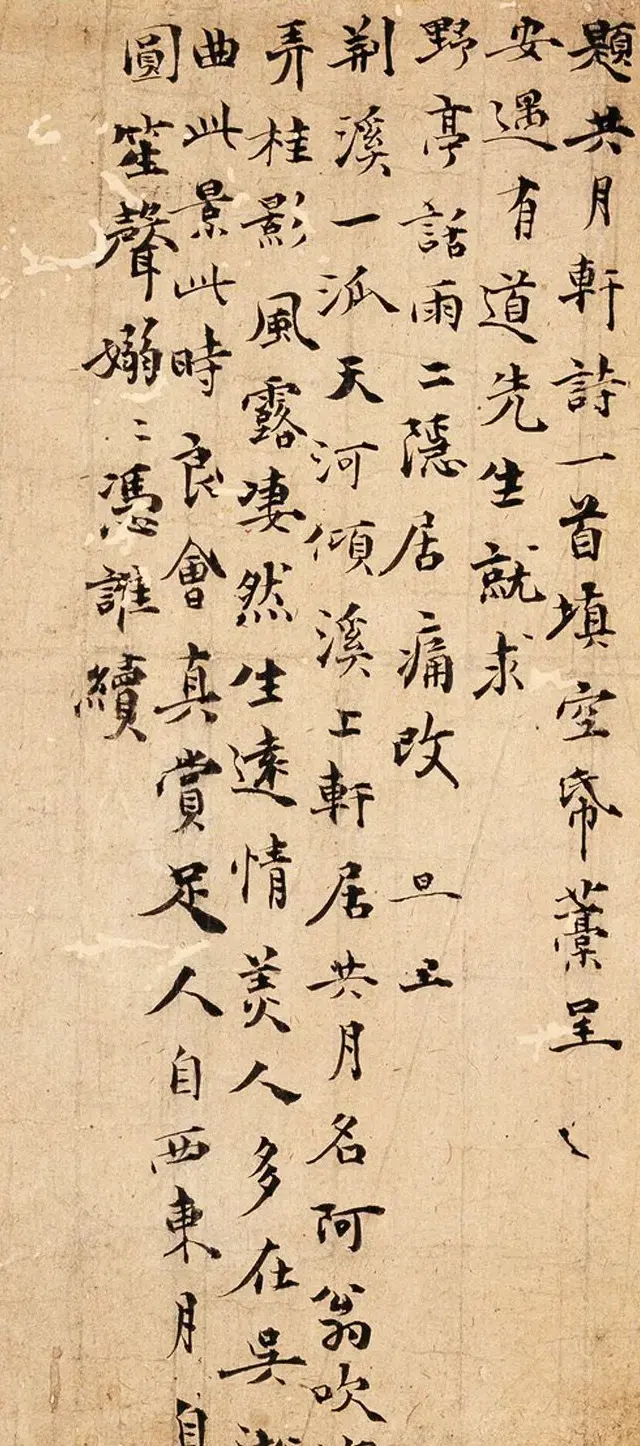 題共月軒詩一首填空帋藁呈
安遇有道先生就求
野亭話雨二隱居痛改　旦
荆溪一泒天河傾溪上軒居共月名阿翁吹
弄桂影風露凄然生遠情美人多在吳
曲此景此時良會真賞足人自西東月自
圓笙聲嫋〻憑誰續